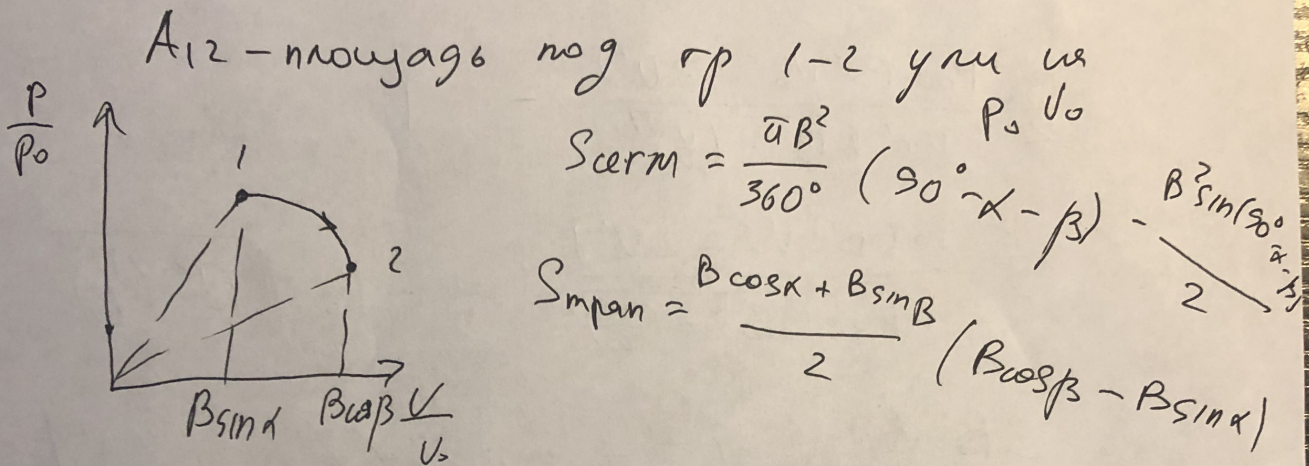 A₁₂ – площадь под гр 1-2 умн на
P₀ V₀
P/P₀
1
2
B sin α B cos β V/V₀
Sсегм = πB²/360° (90° - α - β) - B² sin(90° - α - β)/2
Sтрап = (B cos α + B sin β)/2 (B cos β - B sin α)